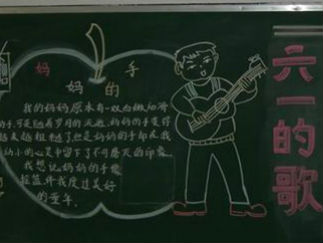 妈妈的手
我的妈妈原本有一双白嫩细滑
的手,可是随着岁月的流逝,妈妈的手变得
粗糙了但是妈妈的手却在我
幼小的心灵中留下了不可磨灭的印象
我想说妈妈的手像
摇篮伴我度过美好
的童年.
六一的歌